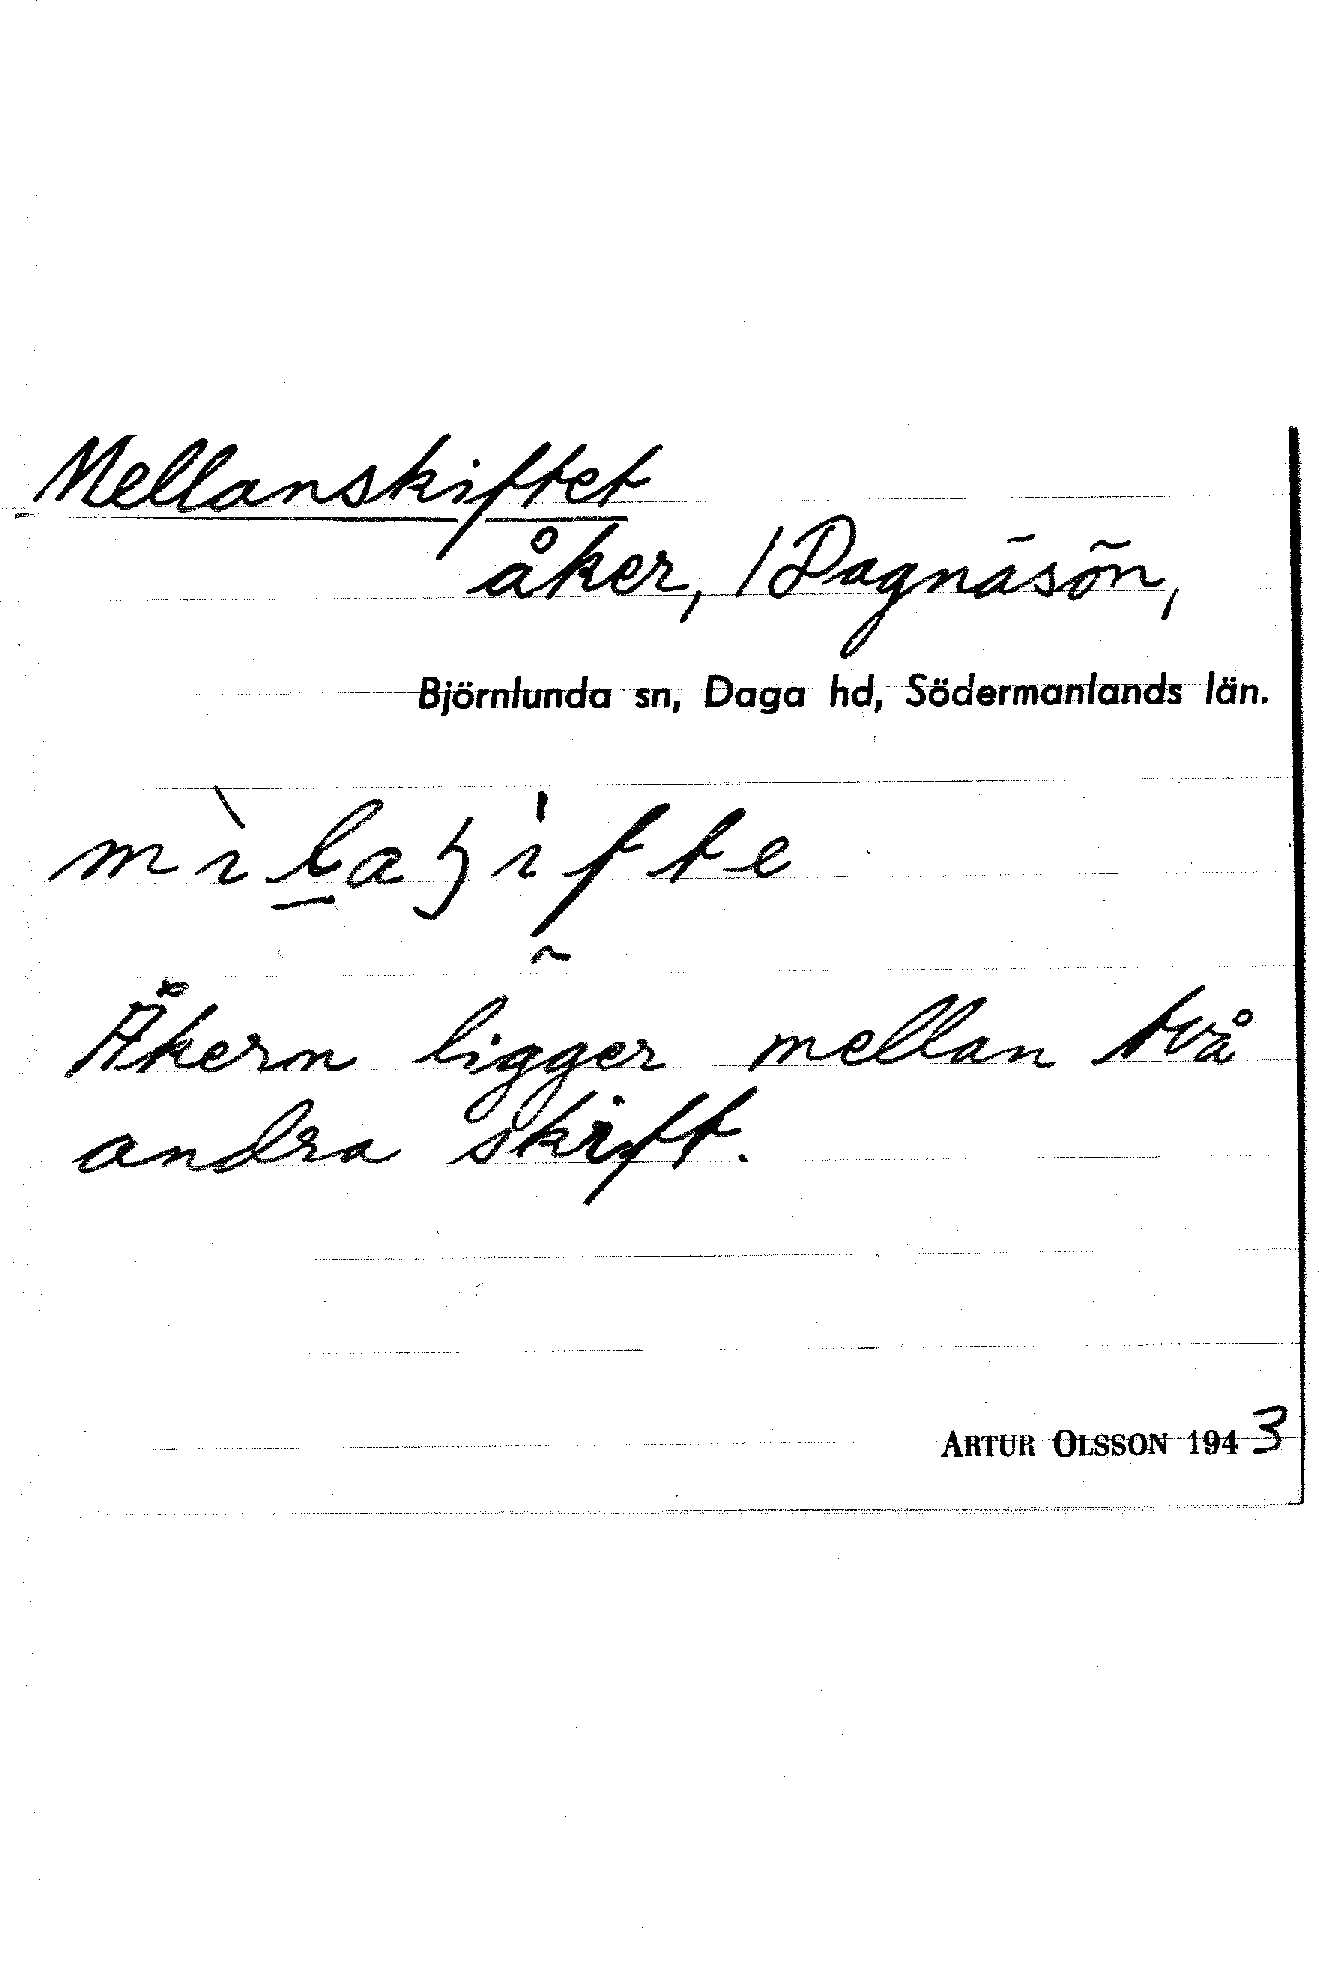 Mellanskiftet
åker, / Dagnäsön,
Björnlunda sn, Daga hd, Södermanlands län.
Åkern ligger mellan två
andra skift.
ARTUR OLSSON 1943